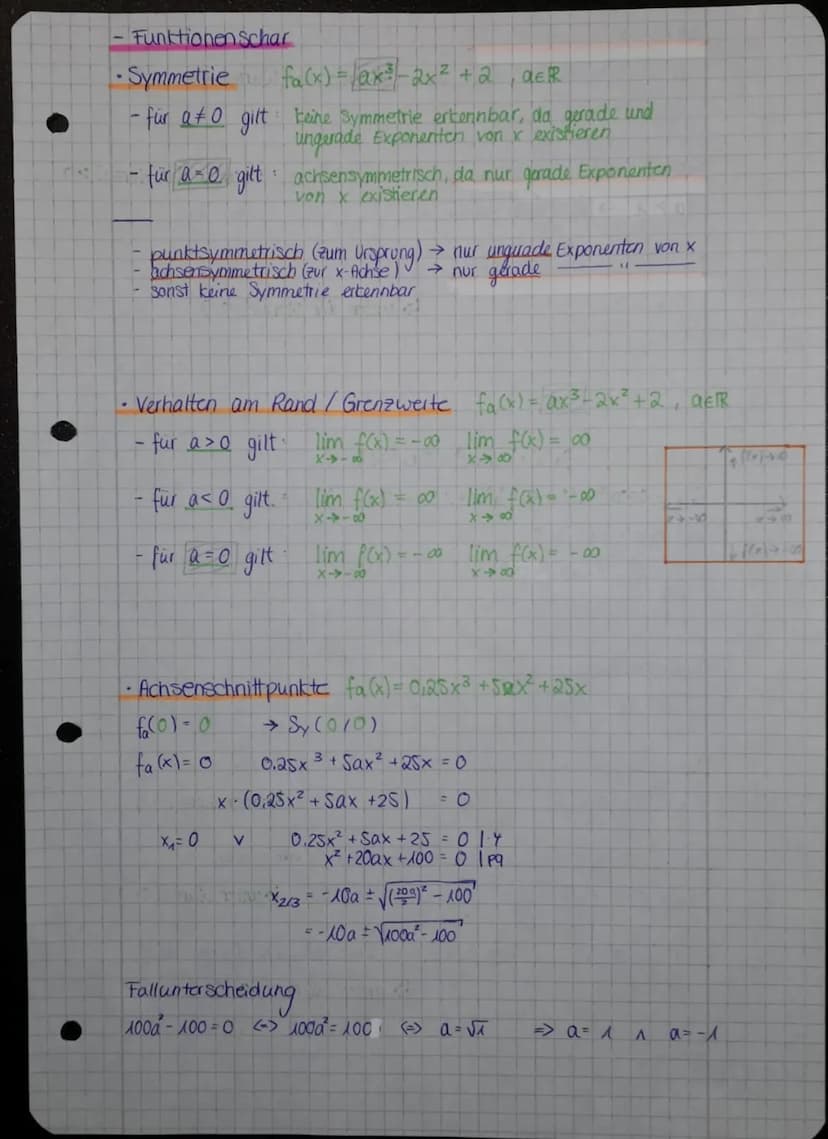 - Funktionenschar
• Symmetrie fa(x) = ax³ - 2x² + 2 , a∈ℝ
- für a ≠ 0 gilt : keine Symmetrie erkennbar, da gerade und
ungerade Exponenten von x existieren
- für a = 0 gilt : achsensymmetrisch, da nur gerade Exponenten
von x existieren
- punktsymmetrisch (zum Ursprung) → nur ungerade Exponenten von x
- achsensymmetrisch (zur x-Achse) → nur gerade —— " ——
- sonst keine Symmetrie erkennbar
• Verhalten am Rand / Grenzwerte fa(x) = ax³ - 2x² + 2 , a∈ℝ
- für a > 0 gilt : lim x→-∞ f(x) = -∞ lim x→∞ f(x) = ∞
- für a < 0 gilt : lim x→-∞ f(x) = ∞ lim x→∞ f(x) = -∞
- für a = 0 gilt : lim x→-∞ f(x) = -∞ lim x→∞ f(x) = -∞
f(x)→∞
x→-∞ x→∞
f(x)→-∞
• Achsenschnittpunkte fa(x) = 0,25x³ + 5ax² + 25x
fa(0) = 0 → Sy (0/0)
fa(x) = 0 0.25x³ + 5ax² + 25x = 0
x · (0,25x² + 5ax + 25) = 0
x₁ = 0 v 0.25x² + 5ax + 25 = 0 | · 4
x² + 20ax + 100 = 0 | pq
x₂/₃ = -10a ± √((20a/2)² - 100)
= -10a ± √(100a² - 100)
Fallunterscheidung
100a² - 100 = 0 <=> 100a² = 100 <=> a = √1 => a = 1 ∧ a = -1